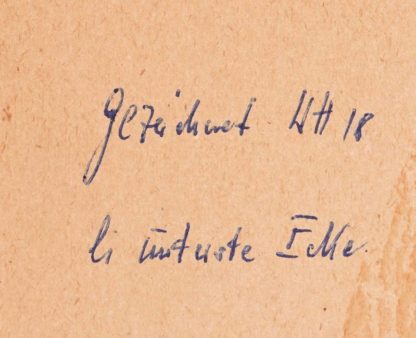 gezeichnet WH 18
li unterste Ecke